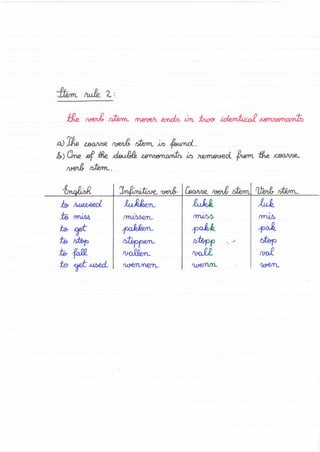 Stem rule 2:
the verb stem never ends in two identical consonants
a) The coarse verb stem is found.
b) One of the double consonants is removed from the coarse
verb stem.
English Infinitive verb Coarse verb stem Verb stem
to succeed lukken lukk luk
to miss missen miss mis
to get pakken pakk pak
to stop stoppen stopp stop
to fall vallen vall val
to get used wennen wenn wen